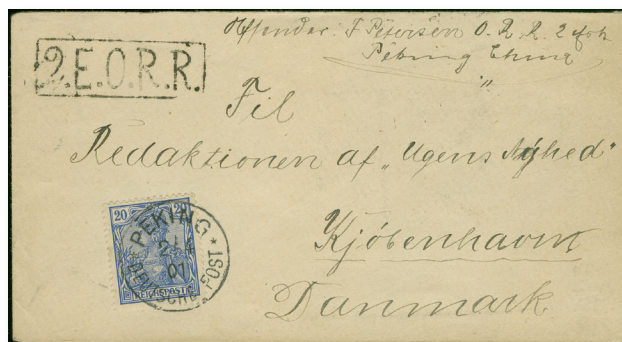 Afsender: F Petersen O. R. R. 2
Peking China
2.E.O.R.R.
Til
Redaktionen af „Ugens Nyhed"
Kjöbenhavn
Danmark.
20 20
REICHSPOST
PEKING
2/4
01
DEUTSCHE POST